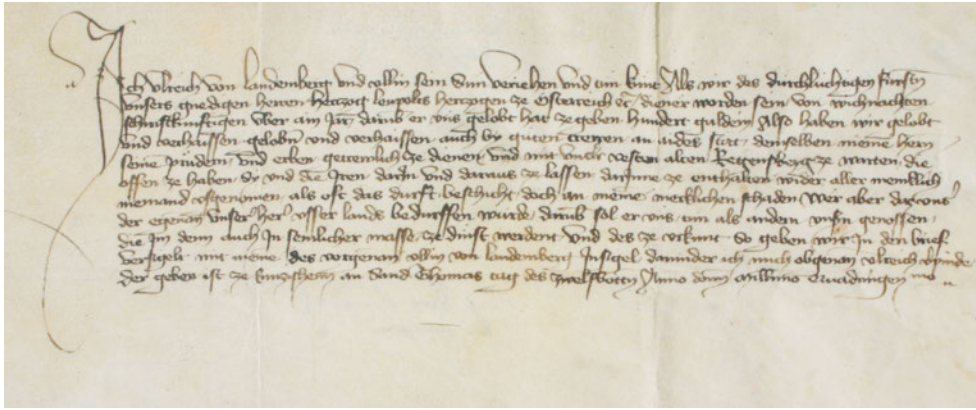 Ich Ulreich von Landemberg und Ullin sein Sun veriehen und tun kunt Als wir des durchluchtigen fursten
unsers gnedigen herren Hertzog Leupolts Hertzogen ze Osterreich etc diener worden sein von wichnachten
schirstkunftigen uber ain Jar darub er uns gelobt hat ze geben hundert guldein Also haben wir gelobt
und verhaissen geloben und verhaissen auch by guten trewen an aides stat demselben meine hern
seine prudern und erben getrewlich ze dienen und mit unsr vesten alten Regensberg ze warten die
offen ze haben Sy und die Iren darin und daraus ze lassen darinne ze enthalten wider aller menklich
niemand usgenomen als oft das durft beschicht doch an meine merklichen schaden Wer aber daz uns
der egenan unser her usser lands bedurffen wurde darub sol er uns tun als andern unsn genossen
die Im denn auch In semlicher masse ze dinst werdent Und des ze urkunt So geben wir In den brief
versigelt mit meine des vorgenan Ullin von Landemberg Insigel darunder ich mich obgenan Ulreich
Der geben ist ze an Sand Thomas tag des zwelfbotten Anno domi